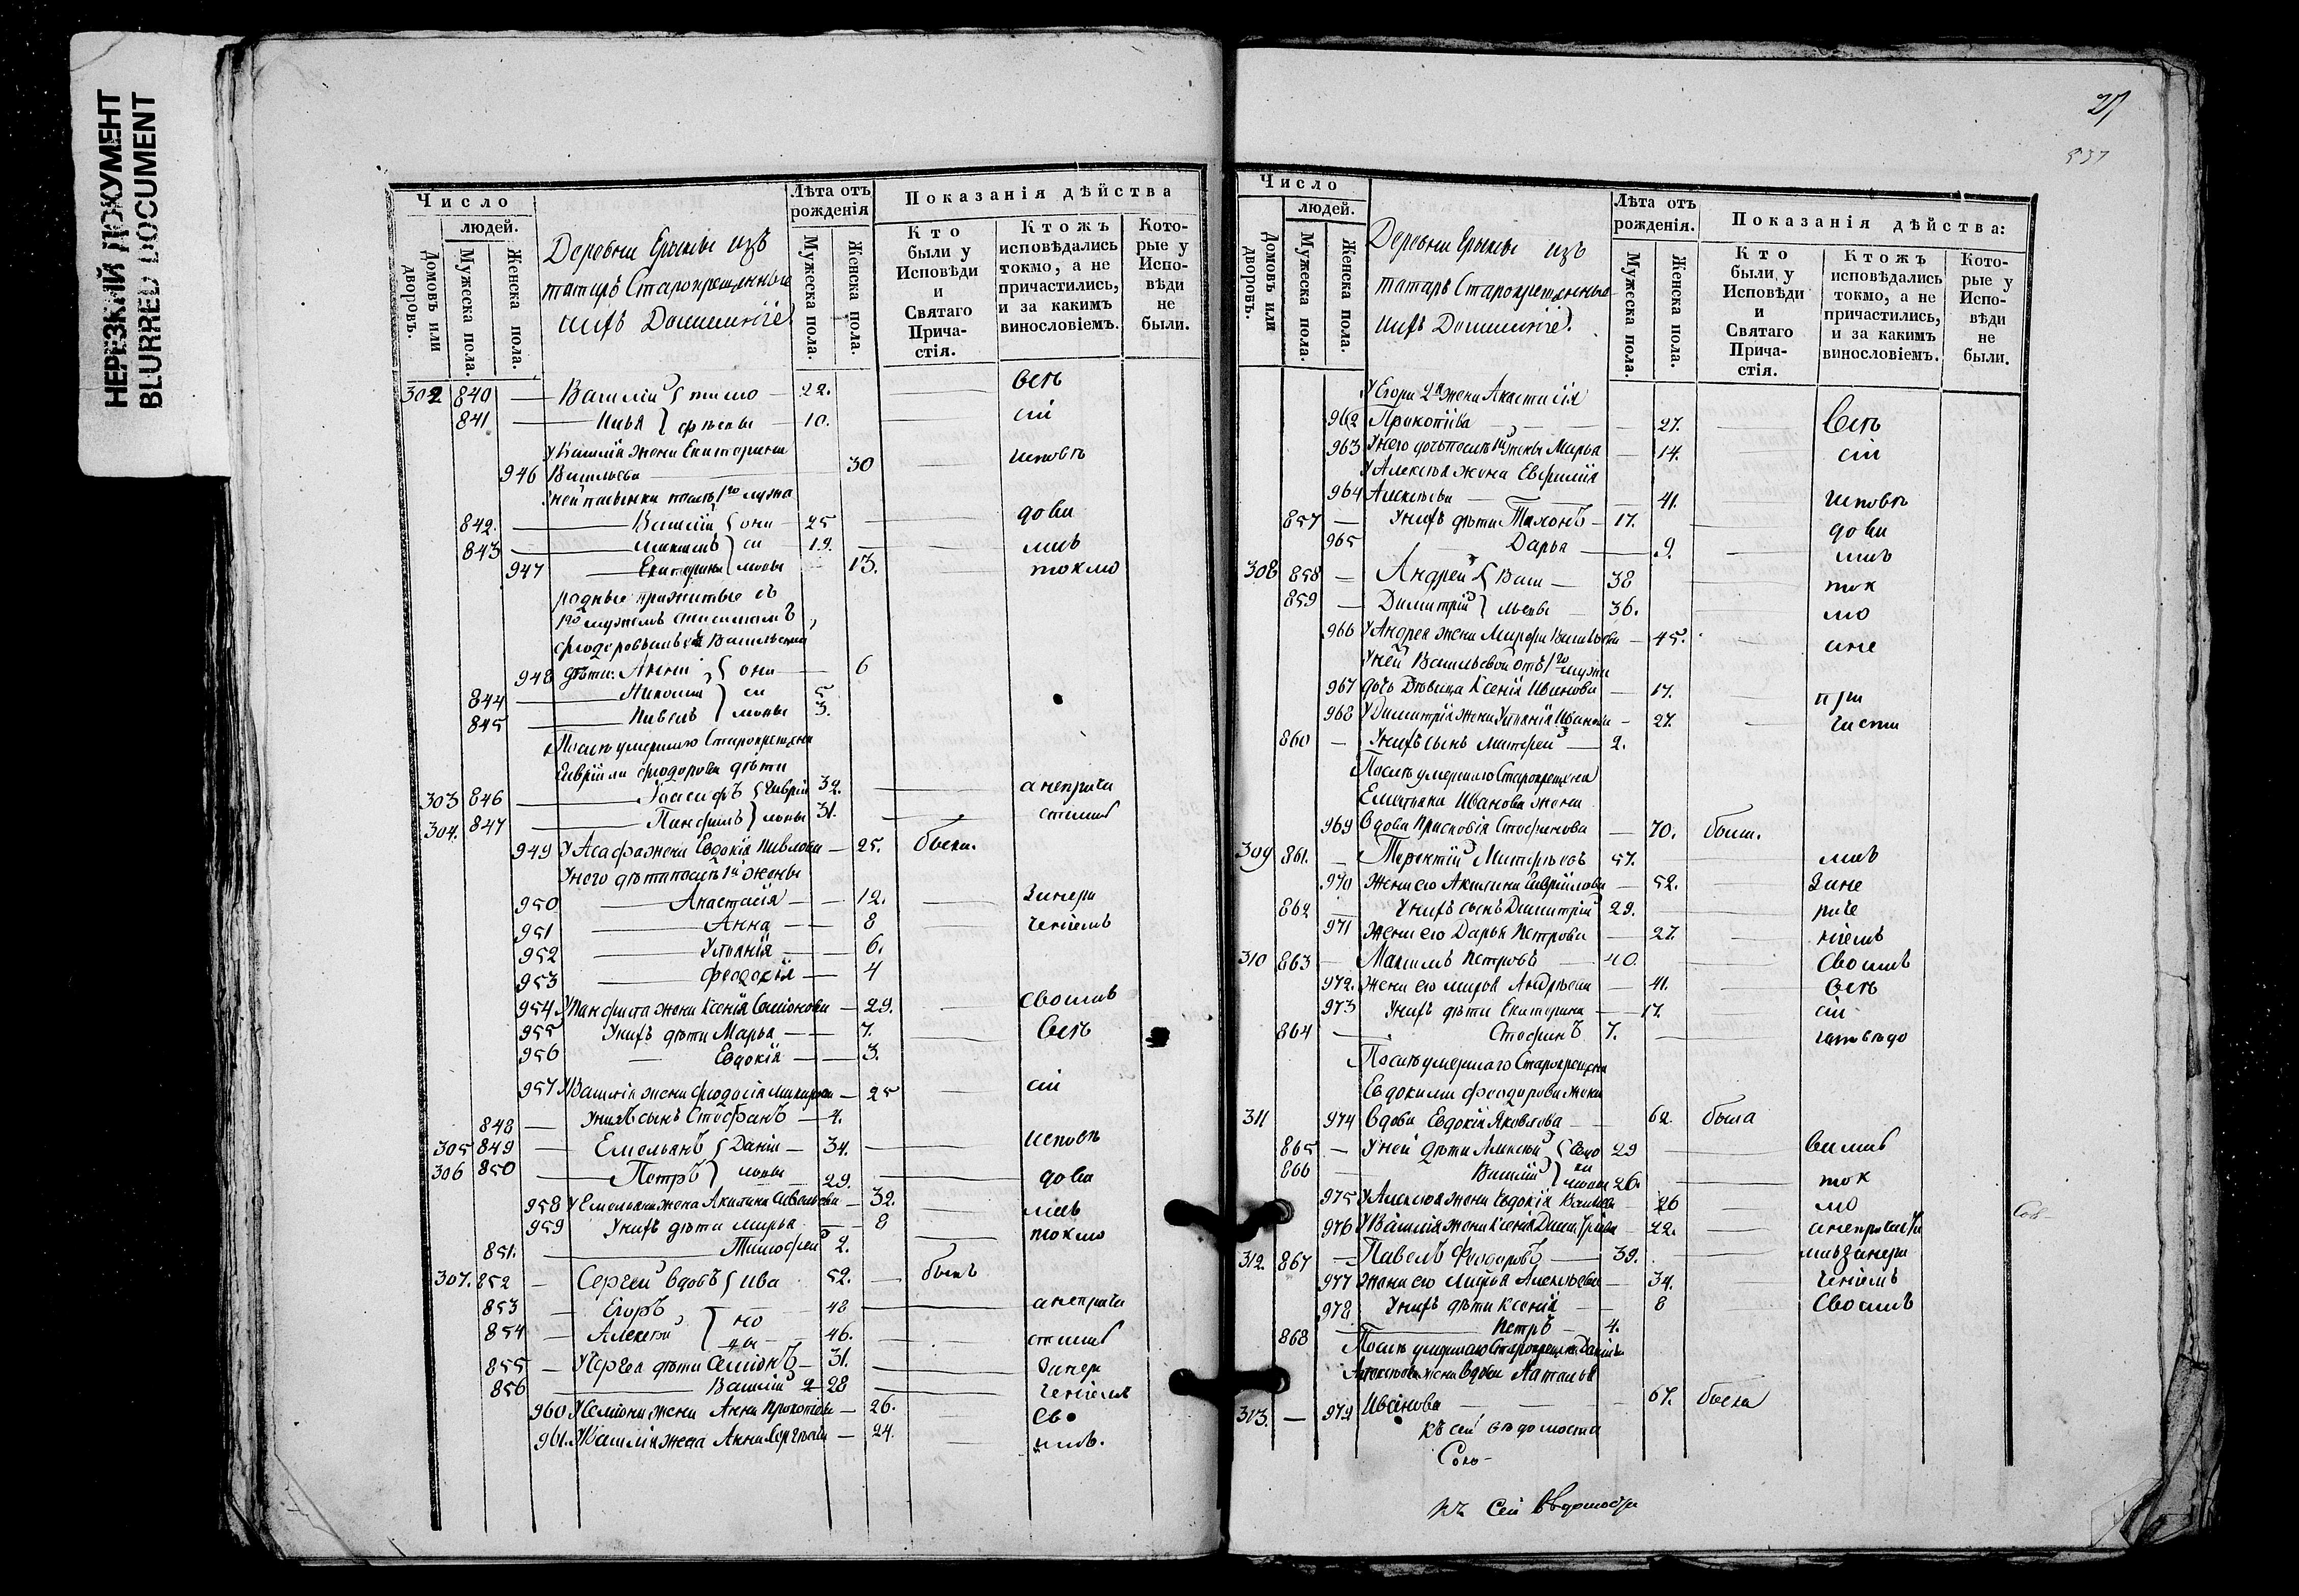 НЕРЕЗКИЙ ДОКУМЕНТ
BLURRED DOCUMENT
Число
людей.
Домовъ или дворовъ.
Мужеска пола.
Женска пола.
Деревни Ерыклы изъ
татаръ Старокрещенные
Лѣта отъ рожденія
Мужеска пола.
Женска пола.
Показанія дѣйства
Кто были у Исповѣди и Святаго Причастія.
Ктожъ исповѣдались токмо, а не причастились, и за какимъ винословіемъ.
Которые у Исповѣди не были.
302 840 Василій 22. всѣ
841 Илья 10. сіи
У Василія жена Екатерина
946 Васильева 30 исповѣ
У ней пасынки послѣ 1го мужа
842. Василій 25 дова
843 Максимъ 19. лись
947 Екатерина 13. токмо
родные прижитые съ
1мъ мужемъ
948 дѣти: Анна 6
844 Николай 5
845 Павелъ 3.
Послѣ умершаго Старокрещена
Гавріила Феодорова дѣти
303 846 Іоасафъ Гаврі 32. а неприча
304. 847 Панфилъ ловы 31. стились
949 У Асафа жена Евдокія Павлова 25. была.
У него дѣти послѣ 1й жены
950 Анастасія 12. за нера
951 Анна 8 ченіемъ
952 Уліанія 6.
953 Феодосія 4
954 У Панфила жена Ксенія Семіонова 29. своимъ
955 У нихъ дѣти Марья 7. всѣ
956 Евдокія 3.
957 У Василія жена Феодосія 25 сіи
848 У нихъ сынъ Стефанъ 4.
305 849 Емельянъ Даніи 34. исповѣ
306 850 Петръ ловы 29. дова
958 У Емельяна жена Акилина Савельева 32. лись
959 У нихъ дѣти Марья 8 токмо
851. Тимофей 2.
307. 852 Сергей вдовъ Ива 52. былъ
853 Егоръ но 48 а неприча
854 Алексѣй вы 46. стились
855 У Сергея дѣти Семіонъ 31. за нера
856 Василій 2 28 ченіемъ
960 У Семіона жена Анна Прокопіева 26. Сво
961. У Василія жена Анна Сергѣева 24. имъ.
27
537
Число
людей.
Домовъ или дворовъ.
Мужеска пола.
Женска пола.
Деревни Ерыклы изъ
татаръ Старокрещенные
Лѣта отъ рожденія.
Мужеска пола.
Женска пола.
Показанія дѣйства:
Кто были у Исповѣди и Святаго Причастія.
Ктожъ исповѣдались токмо, а не причастились, и за какимъ винословіемъ.
Которые у Исповѣди не были.
У Егора 2я жена Анастасія
962 Прокопіева 27. Всѣ
963 У него дочь послѣ 1й жены Марья 14. сіи
У Алексѣя жена Евфимія
964 Алексѣева 41. исповѣ
857 У нихъ дѣти Тихонъ 17. дова
965 Дарья 9. лись
308 858 Андрей Васи 38 ток
859 Димитрій льевы 36. мо
966 У Андрея жена Марфа Васильева 45. а не
У ней Васильевой отъ 1го мужа
967 дочь Дѣвица Ксенія Иванова 17. при
968 У Димитрія жена Уліанія Иванова 27. части
860 У нихъ сынъ Матфей 2.
Послѣ умершаго Старокрещена
Емельяна Иванова жена
969 Вдова Прасковія Стефанова 70. была.
309 861. Терентій Матфѣевъ 57. лись
970 Жена его Акилина Гавріилова 52. За не
862 У нихъ сынъ Димитрій 29. раче
971 Жена его Дарья Петрова 27. ніемъ
310 863 Максимъ Петровъ 40. своимъ
972. Жена его Марья Андрѣева 41. всѣ
973 У нихъ дѣти Екатерина 17. сіи
864 Стефанъ 7. исповѣдо
Послѣ умершаго Старокрещена
Евдокима Феодорова жена
311 974 Вдова Евдокія Яковлева 62. была
865 У ней дѣти Алексѣй 29 вались
866 Василій 26. ток
975 У Алексѣя жена Евдокія 26 мо
976 У Василія жена Ксенія Димитріева 22. а непричасти
312. 867 Павелъ Феодоровъ 39. лись за нера
977 Жена его Марья Алексѣева 34. ченіемъ
978 У нихъ дѣти Ксенія 8 Своимъ
868 Петръ 4.
Послѣ умершаго Старокрещена Даніила
Алексѣева жена вдова Наталья
313. 979 Иванова 67. была
Къ сей вѣдомости
къ Сей вѣдомости